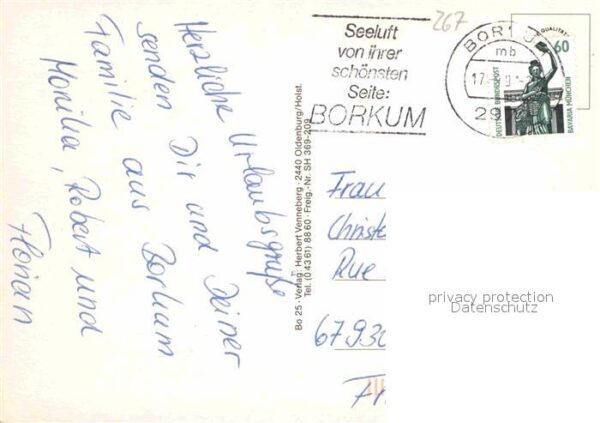 Herzliche Urlaubsgrüße
senden Dir und Deiner
Familie aus Borkum
Monika, Robert und
Florian
Bo 25 · Verlag: Herbert Venneberg · 2440 Oldenburg/Holst.
Tel. (0 43 61) 88 60 · Freig.-Nr. SH 369-209
267
Seeluft
von ihrer
schönsten
Seite:
BORKUM
mb
17.
29
QUALITÄT
60
DEUTSCHE BUNDESPOST
BAVARIA MÜNCHEN
Frau
Christe
Rue
privacy protection
Datenschutz